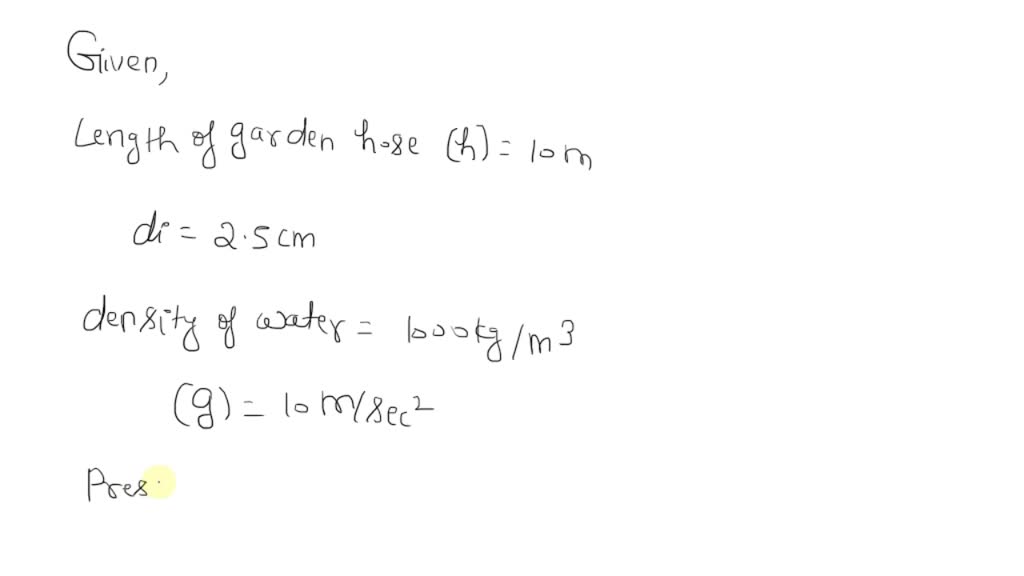 Given,
Length of garden hose (h) = 10 m
di = 2.5 cm
density of water = 1000 kg/m3
(g) = 10 m/sec2
Pres